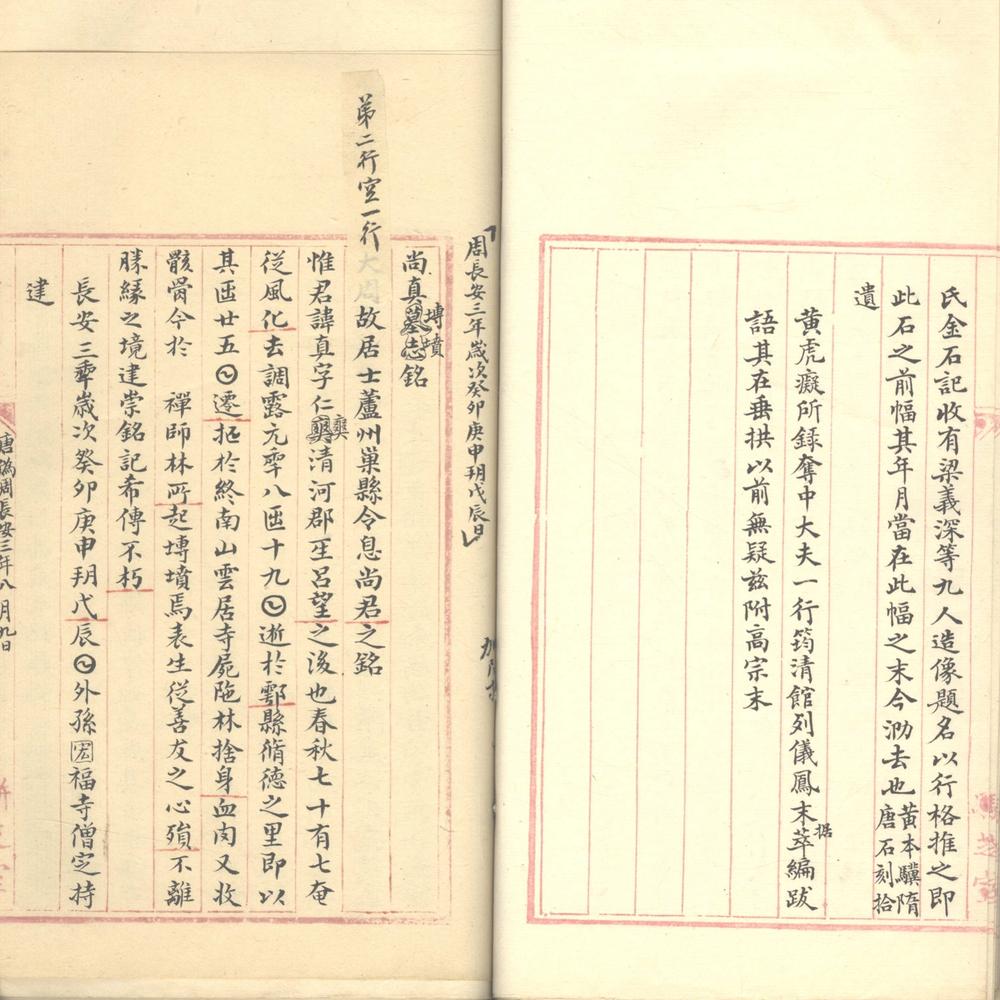 氏金石記收有梁義深等九人造像題名以行格推之即
此石之前幅其年月當在此幅之末今泐去也黃本驥隋唐石刻拾
遺
黃虎癡所錄奪中大夫一行筠清館列儀鳳末萃編跋
据
語其在垂拱以前無疑茲附高宗末
周長安三年歲次癸卯庚申玥戊辰日
尚真墓志銘
塼墳
弟二行空一行
大周故居士蘆州巢縣令息尚君之銘
惟君諱真字仁𡚁清河郡𤯔呂望之後也春秋七十有七奄
從風化去調露元𠡦八𠥱十九𡆠逝於鄠縣脩德之里即以
其𠥱廿五𡆠遷柩於終南山雲居寺屍陁林捨身血肉又收
骸骨今於 禪師林所起塼墳焉表生從善友之心殞不離
勝緣之境建崇銘記希傳不朽
長安三𠡦歲次癸卯庚申玥戊辰𡆠外孫宏福寺僧定持
建
唐偽周長安三年八月九日